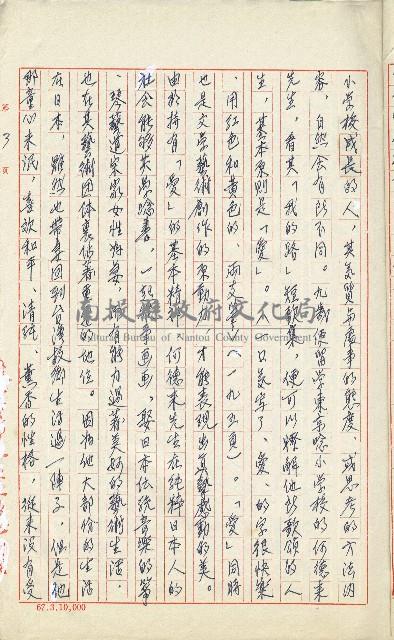 小学校成長的人，其氣質与處事的態度、或思考的方法內
容，自然会有所不同。九歲便留学東京唸小学校的何德来
先生，看其「我的路」短歌集，便可以瞭解他所歌頌的人
生，基本原則是「愛」。「只　　字了、愛、的字很快樂
、用红色和黃色的、兩支筆」（一九五頁）。「愛」同時
也是文学藝術創作的原動力，才能表現出真摯感動的美。
由於持有「愛」的基本精神，何德来先生在純粹日本人的
社会能够　　　　，一　　畫画，娶日本伝統音樂的箏
、琴藝道　家女性為妻，有能力過著美好的藝術生活，
也在其藝術团体裏佔著重要的地位。因為他大部份的生活
在日本，雖然也帶妻回到台湾故鄉生活過一陣子，但是他
那童心未泯，喜欢和平、清純、薰香的性格，從来沒有受
第 3 頁
67.3.10,000
南投縣政府文化局
Cultural Bureau of Nantou County Government